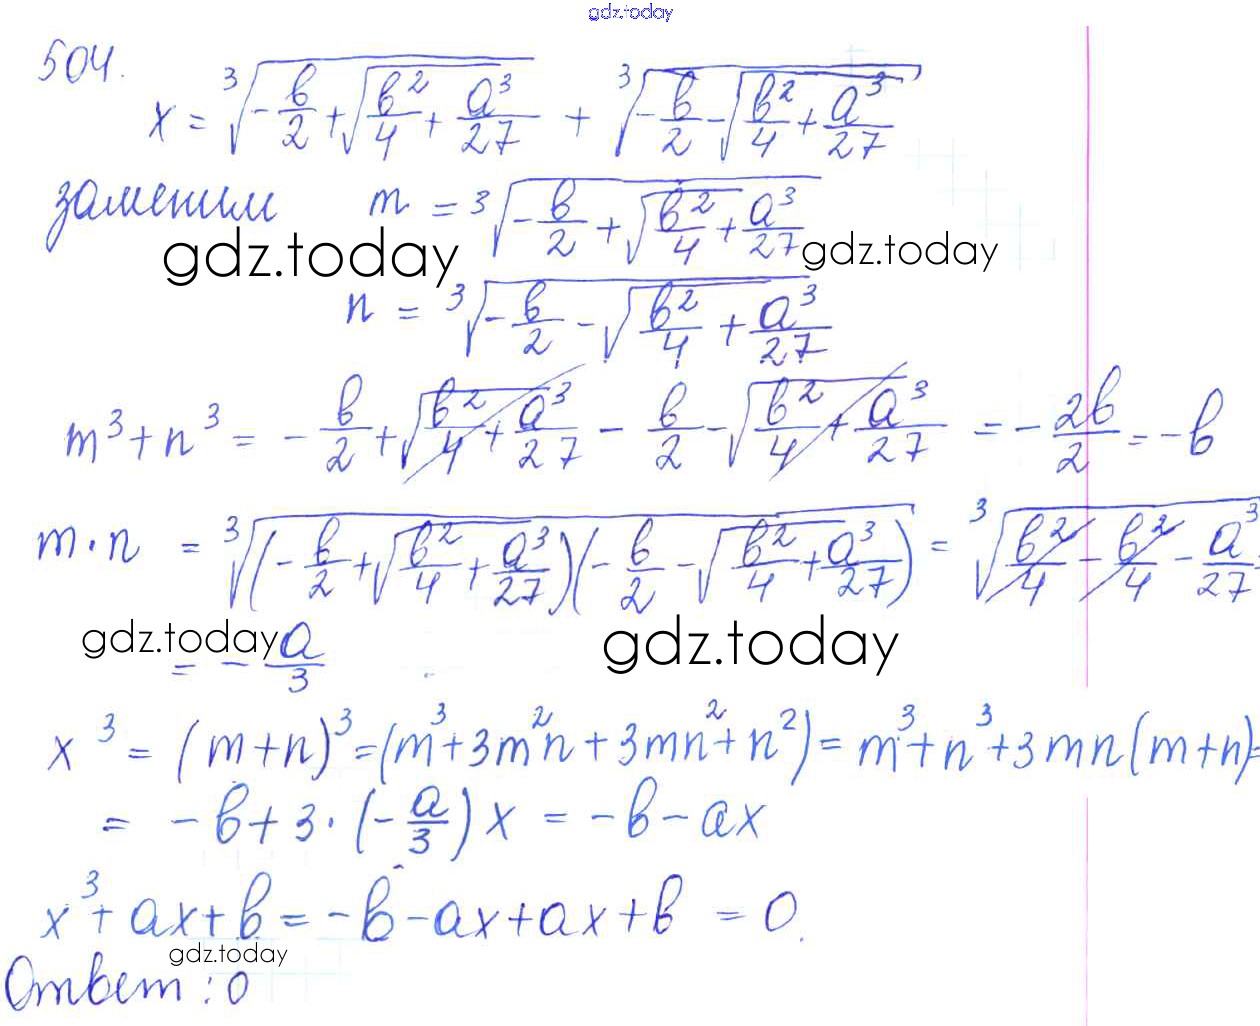 gdz.today
504.
x = ∛(-в/2 + √(в²/4 + a³/27)) + ∛(-в/2 - √(в²/4 + a³/27))
заменим m = ∛(-в/2 + √(в²/4 + a³/27))
gdz.today gdz.today
n = ∛(-в/2 - √(в²/4 + a³/27))
m³ + n³ = -в/2 + √(в²/4 + a³/27) - в/2 - √(в²/4 + a³/27) = -2в/2 = -в
m·n = ∛((-в/2 + √(в²/4 + a³/27))(-в/2 - √(в²/4 + a³/27))) = ∛(в²/4 - в²/4 - a³/27)
gdz.today gdz.today
= -a/3
x³ = (m+n)³ = (m³ + 3m²n + 3mn² + n²) = m³ + n³ + 3mn(m+n) =
= -в + 3·(-a/3)x = -в - ax
x³ + ax + в = -в - ax + ax + в = 0.
gdz.today
Ответ: 0